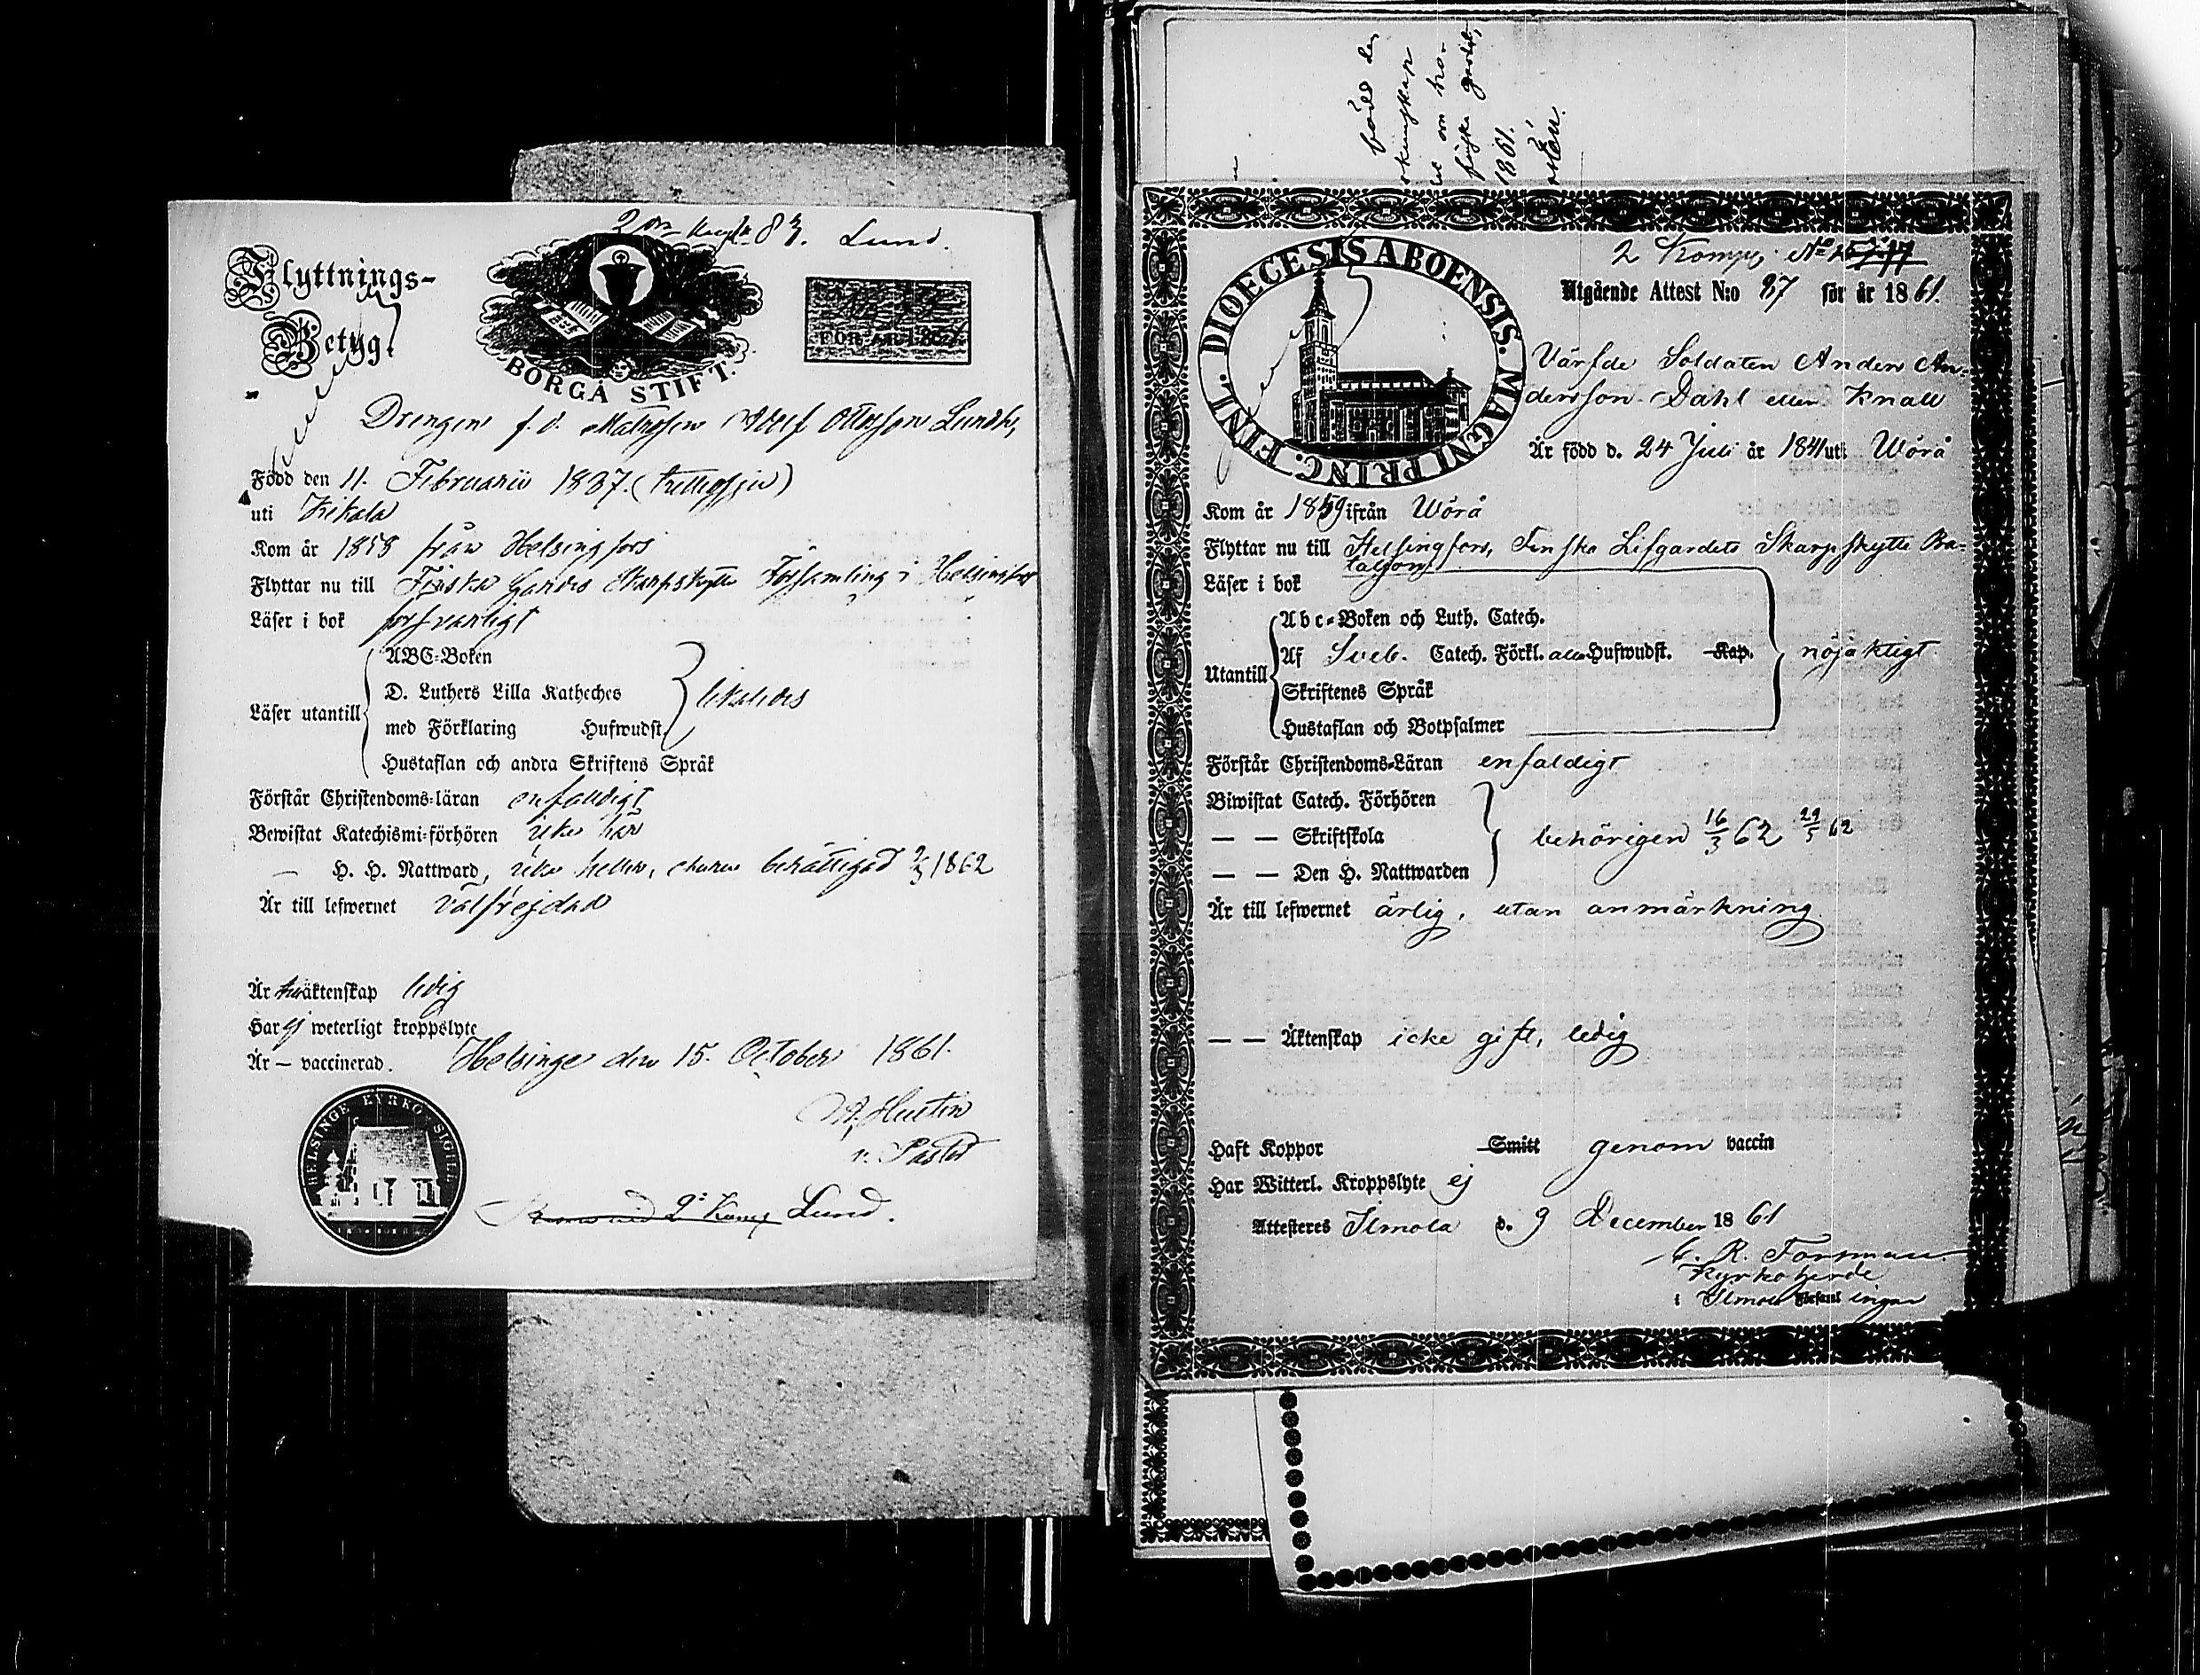 2 Komp. 83. Lund.
Flyttnings-
Betyg.
BORGÅ STIFT.
FÖR ÅR
Drengen f. d. Matrosen Adolf Ottosson Lundh,
Född den 11. Februarii 1837. (trettiosju)
uti Kikala
Kom år 1858 från Helsingfors
Flyttar nu till Finska Gardes Skarpskytte Församling i Helsingfors
Läser i bok försvarligt
ABC-Boken
D. Luthers Lilla Katheches
Läser utantill
med Förklaring Hufwudst.
likaledes
Hustaflan och andra Skriftens Språk
Förstår Christendoms-läran enfaldigt
Bewistat Katechismi-förhören icke här
— H. H. Nattward, icke heller, berättigad 1862
Är till lefwernet välfrejdad
Är äktenskap ledig
Har ej weterligt kroppslyte
Är — vaccinerad.
Helsinge den 15. October 1861.
HELSINGE KYRKO SIGILL
v. Pastor
2 Komp Lund.
1861.
2 Komp. No
Utgående Attest N:o 87 för år 1861.
DIOECESIS ABOENSIS. MAGNI PRINC. FINL.
Värfde Soldaten Anders An-
dersson Dahl eller Knall
Är född d. 24 Juli år 1841 uti Wörå
Kom år 1859 ifrån Wörå
Flyttar nu till Helsingfors, Finska Lifgardets Skarpskytte Ba-
taljon
Läser i bok
Abc-Boken och Luth. Catech.
Utantill
Af Sveb. Catech. Förkl. alla Hufwudst. Kap.
nöjaktigt
Skriftenes Språk
Hustaflan och Botpsalmer
Förstår Christendoms-Läran enfaldigt
Biwistat Catech. Förhören
— — Skriftskola
behörigen 16/3 62 29/5 62
— — Den H. Nattwarden
Är till lefwernet ärlig, utan anmärkning
— — Äktenskap icke gift, ledig
Haft Koppor Smitt genom vaccin
Har Witterl. Kroppslyte ej
Attesteres Ilmola d. 9 December 1861
C. R. Forsman
Kyrkoherde
i Ilmola Församlingar